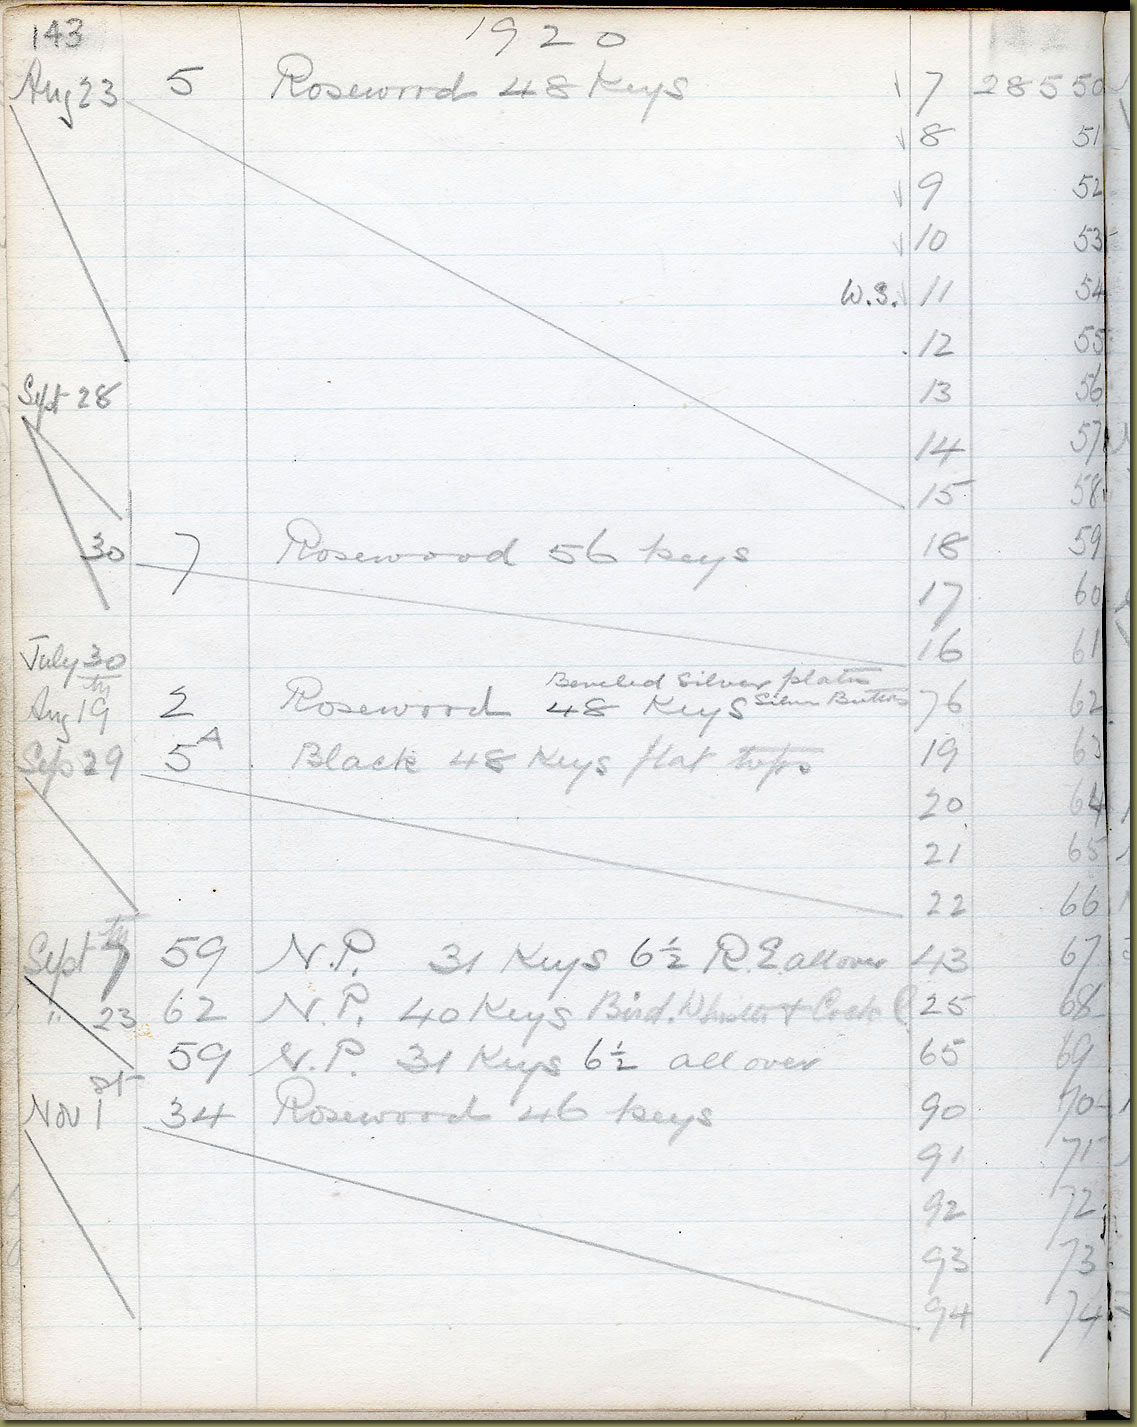 143 1920
Aug 23 5 Rosewood 48 Keys 7 28550
8 51
9 52
10 53
W.S. 11 54
12 55
Sept 28 13 56
14 57
15 58
30 7 Rosewood 56 keys 18 59
17 60
July 30 16 61
th Beveled Silver plated
Aug 19 2 Rosewood 48 Keys Silver Buttons 76 62
Sep 29 5A Black 48 Keys flat tops 19 63
20 64
21 65
22 66
Sept 7th 59 N.P. 31 Keys 6½ R.E. all over 43 67
" 23 62 N.P. 40 Keys Bird. Whistle + Cock 25 68
59 N.P. 31 Keys 6½ all over 65 69
Nov 1st 34 Rosewood 46 keys 90 70
91 71
92 72
93 73
94 74